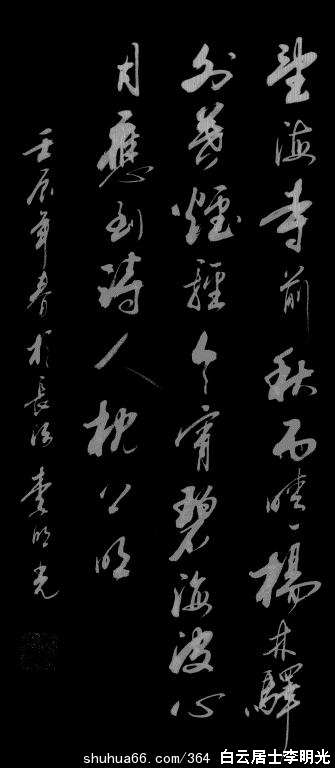 望海寺前秋雨晴楊林驛
外暮煙輕今宵碧海波心
月應到詩人枕上明
壬辰年春於長 李明光
shuhua66.com/364 白云居士李明光